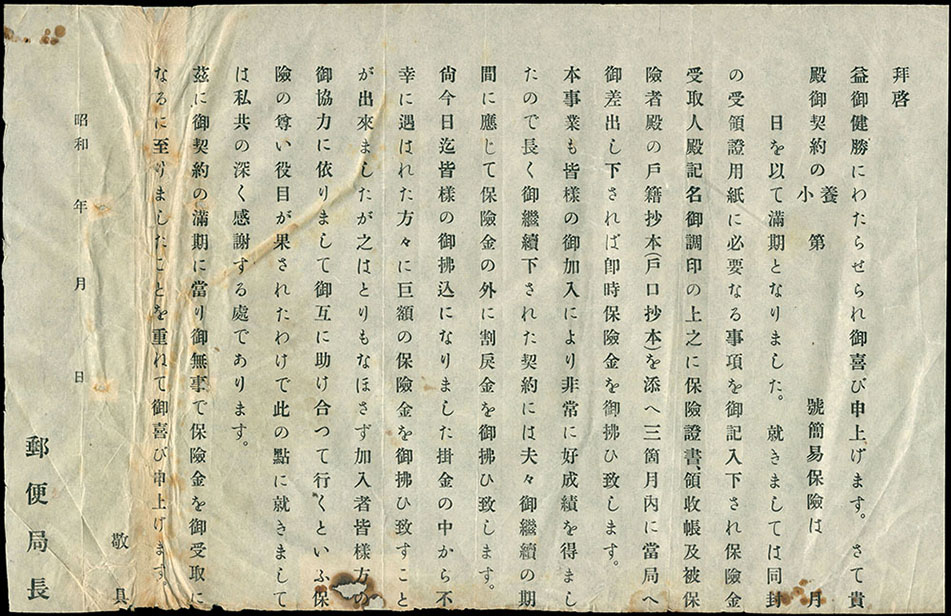 拜啓
益御健勝にわたらせられ御喜び申上げます。さて貴
殿御契約の養小第　　號簡易保險は　　月
日を以て滿期となりました。就きましては同封
の受領證用紙に必要なる事項を御記入下され保險金
受取人殿記名御調印の上之に保險證書、領收帳及被保
險者殿の戸籍抄本(戸口抄本)を添へ三箇月內に當局へ
御差出し下されば卽時保險金を御拂ひ致します。
本事業も皆樣の御加入により非常に好成績を得まし
たので長く御繼續下された契約には夫々御繼續の期
間に應じて保險金の外に割戾金を御拂ひ致します。
尙今日迄皆樣の御拂込になりました掛金の中から不
幸に遇はれた方々に巨額の保險金を御拂ひ致すこと
が出來ましたが之はとりもなほさず加入者皆樣方の
御協力に依りまして御互に助け合つて行くといふ保
險の尊い役目が果されたわけで此の點に就きまして
は私共の深く感謝する處であります。
茲に御契約の滿期に當り御無事で保險金を御受取に
なるに至りましたことを重ねて御喜び申上げます。
敬具
昭和　年　月　日
郵便局長